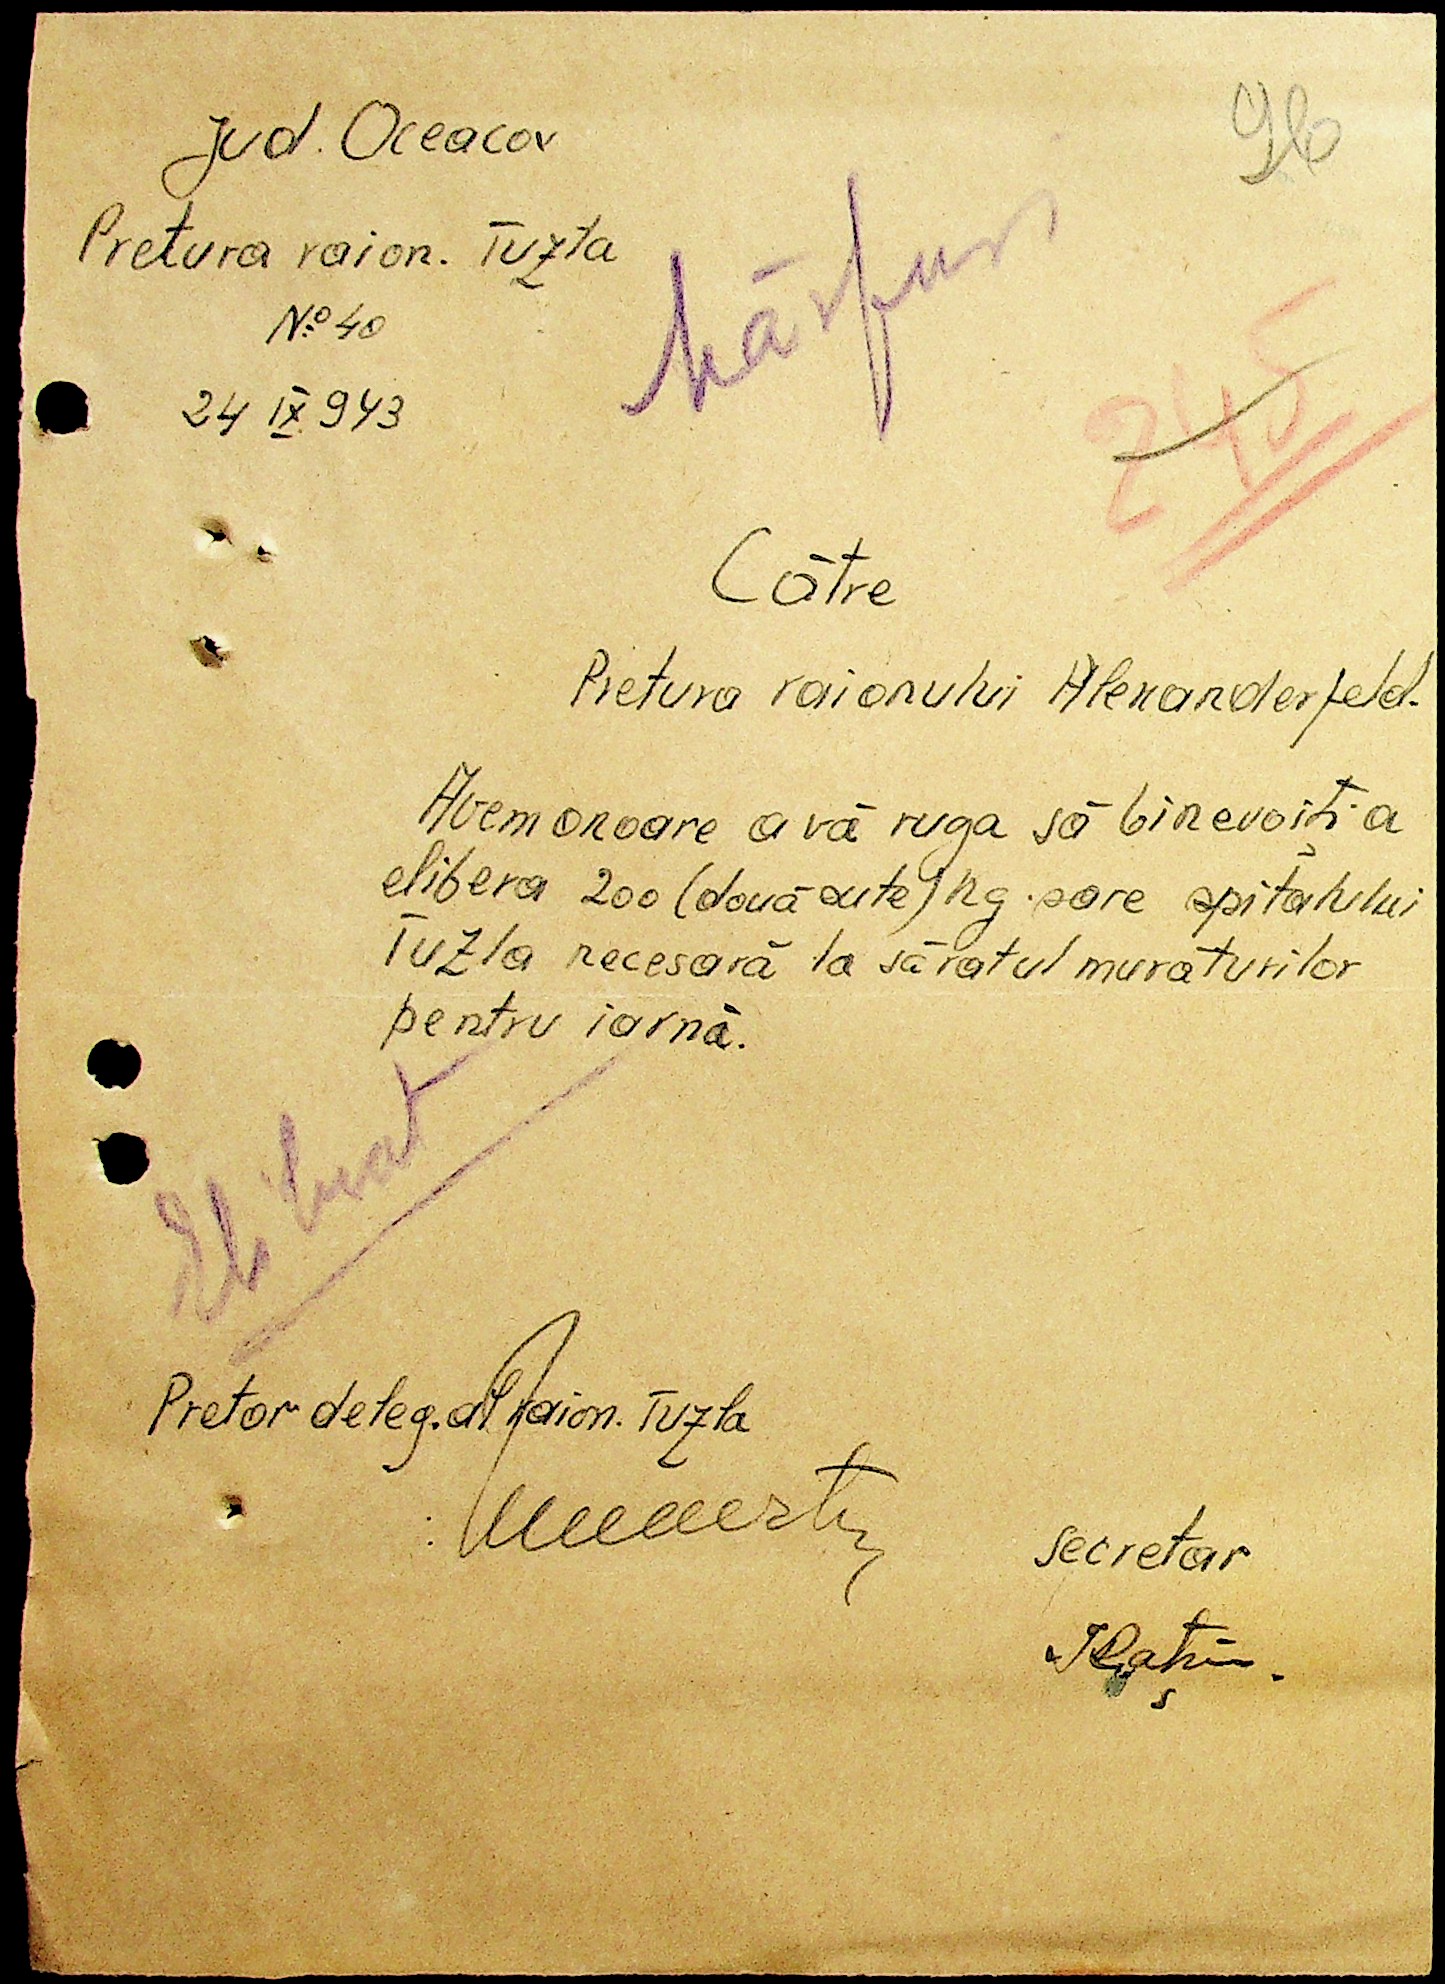 96
Jud. Oceacov
Pretura raion. Tuzla
№ 40
24 IX 943
Mărfuri
245
Către
Pretura raionului Alexanderfeld.
Avem onoare a vă ruga să binevoiți a
elibera 200 (două sute) kg. sare spitalului
Tuzla necesară la săratul murăturilor
pentru iarnă.
Eliberat
Pretor deleg. al raion. Tuzla
secretar